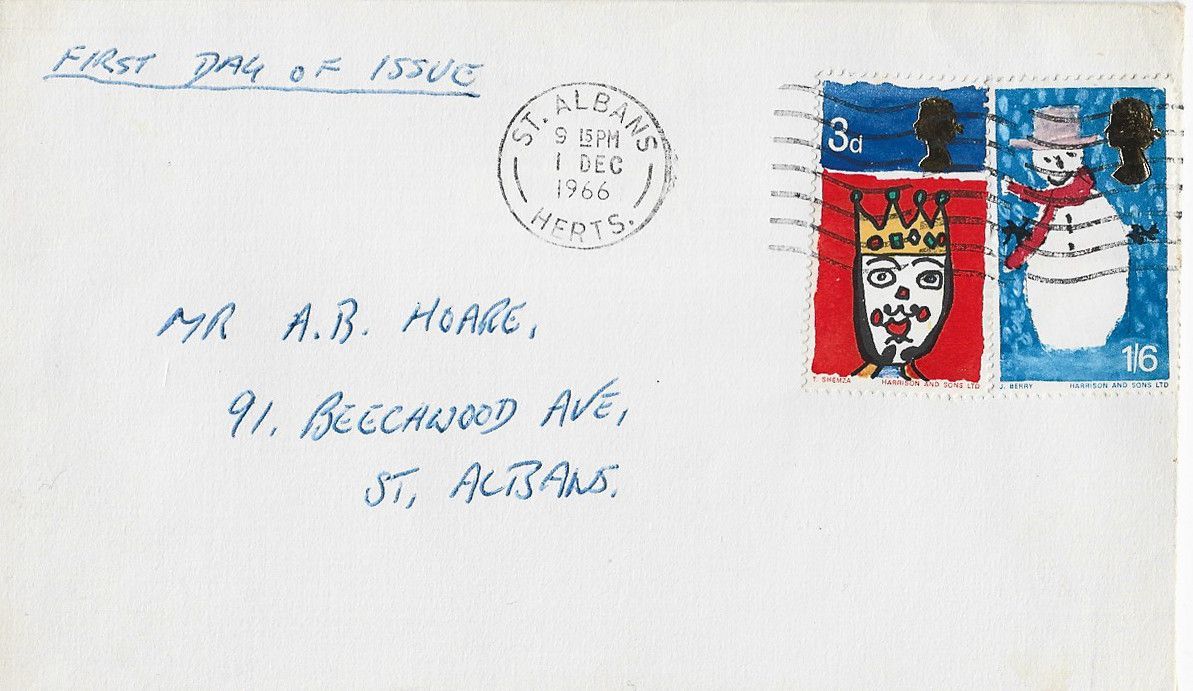 FIRST DAY OF ISSUE
ST. ALBANS
9 15 PM
1 DEC
1966
HERTS.
3d
T. SHEMZA HARRISON AND SONS LTD
1/6
J. BERRY HARRISON AND SONS LTD
MR A.B. HOARE,
91. BEECHWOOD AVE,
ST, ALBANS.